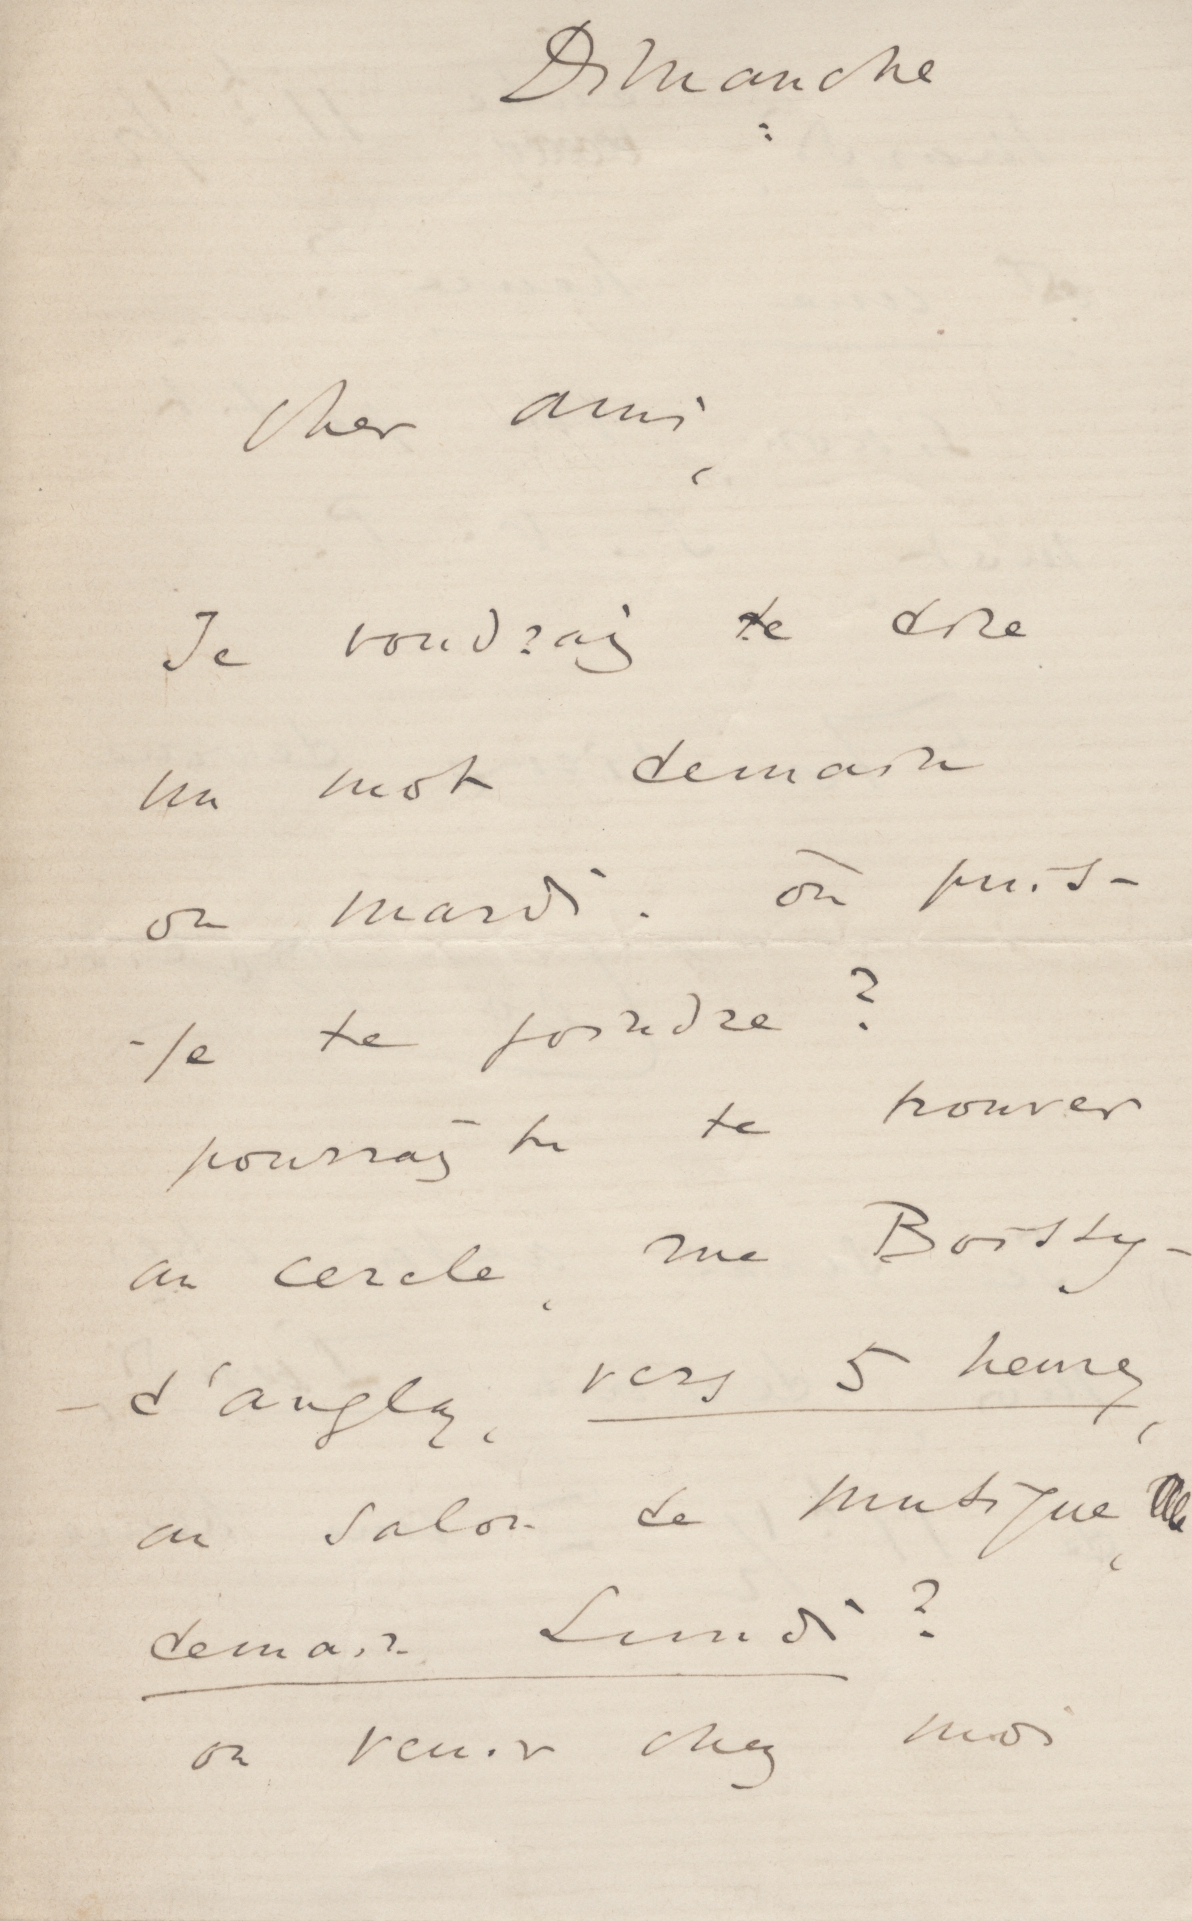 Dimanche
Cher ami,
Je voudrais te dire
un mot demain
ou mardi. où puis-
-je te joindre?
pourrais-tu te trouver
au cercle, rue Boissy-
-d'anglas, vers 5 heures,
au salon de musique,
demain Lundi?
ou venir chez moi